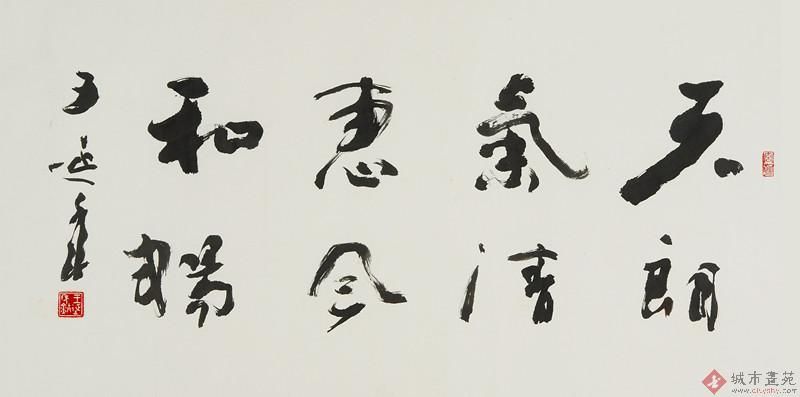 天朗
氣清
惠風
和暢
城市畫苑